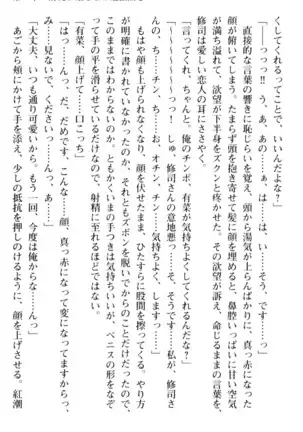 くしてくれるってことで、いいんだな？」
「っ……っっっ？　う、あのっ……は、い……そう、です……っ」
直接的な言葉の響きに恥じらいを覚え、頭から湯気が上らんばかりに、真っ赤になった
顔が俯いてしまう。たまらず頭を抱き寄せて髪に顔を埋めると、鼻腔いっぱいに甘い空気
が満ち溢れて、欲望が下半身をズクンと疼かせた。その欲望が訴え、命じるままの言葉を、
修司は恋人の耳にささやく。
「言ってくれ、ちゃんと。俺のチンポ、有菜が気持ちよくしてくれるんだな？」
「っっっ～～～っ！　しゅ、修司さんの意地悪っ……く、そうですっ……私が、修司さ
んの、ち……チン、お、オチン、チン……気持ちよく、します……っ」
もはや顔も上げられなくなり、顔を伏せたまま、ひたすらに股間を擦ってくる。やり方
が明確に書かれていなかったのか、それともズボンを脱いでからのことだけだったのか。
このままではわからないが、ともかくいまの手つきは気持ちいいが、ペニスの形をなぞ
って手の平を滑らせているだけなので、射精に至れるほどではない。
「有菜、顔上げて……口こっち」
「はっ……んっ、だ、だめです、こんな……顔、真っ赤になって変になってますからっ、
み……見ない、で、くださいっ……んっ、んぅっ……」
「大丈夫、いつも通り可愛いから。もう一回、今度は俺から……んっ」
あごから頬にかけて手を添え、少しの抵抗を押しのけるように、顔を上げさせる。紅潮